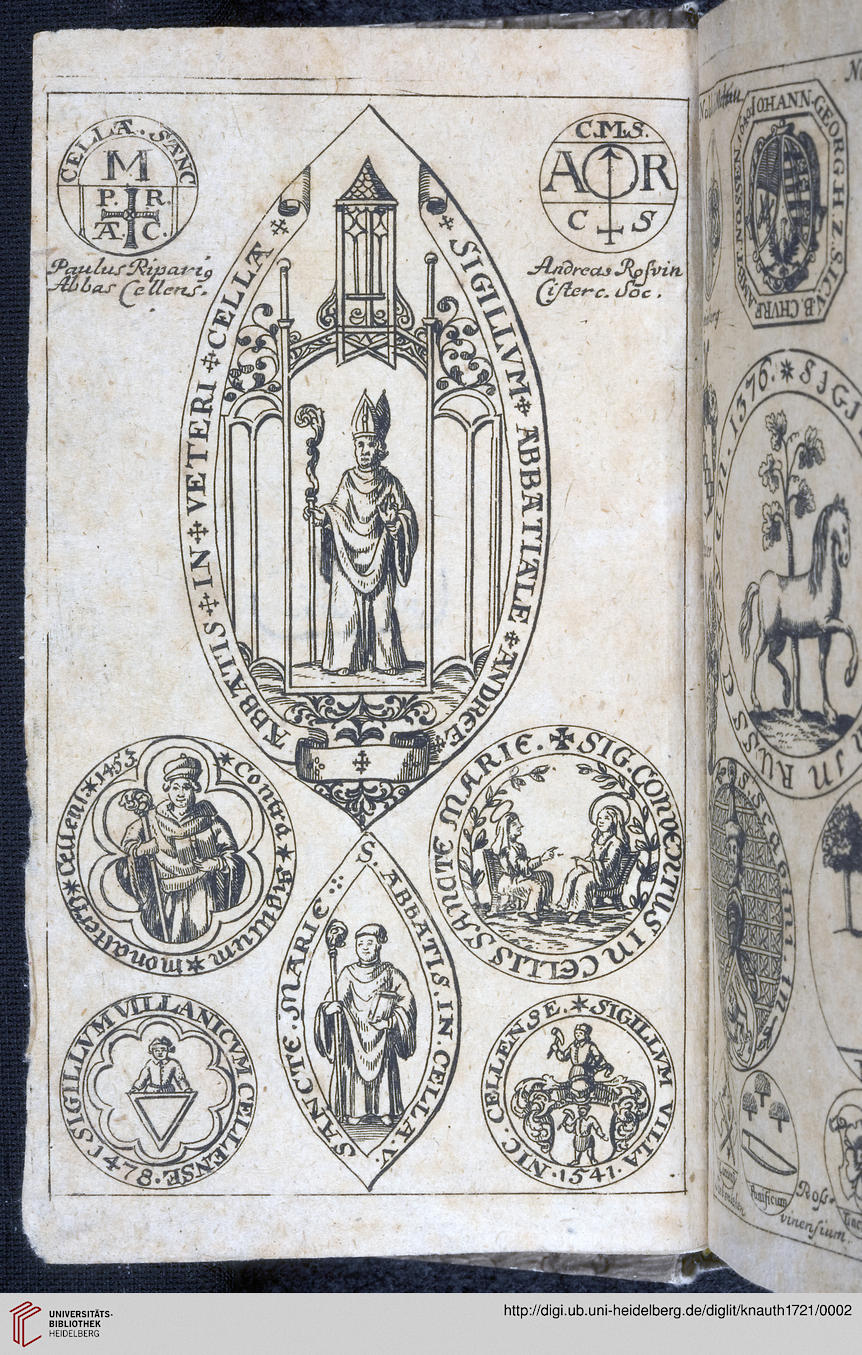 CELLÆ · SANC
M
P. R.
A. C.
Paulus Riparig
Abbas Cellens.
C.M.S.
A R
C S
Andreas Rosvin
Cisterc. Soc.
SIGILLVM ABBATIALE ANDREE ABBATIS IN VETERI CELLA
Contra sigillum monasterij cellens 1453
SIG. CONVENTUS IN CELLIS SANCTE MARIE.
S. ABBATIS. IN. CELLA. V. SANCTE. MARIE
SIGILLVM VILLANICVM CELLENSE 1478
SIGILLVM VILLA NIC. CELLENSE. 1541
JOHANN-GEORG. H. Z. S. I. C. V. B. CHVRF. AMBT. NOSSEN. 1640
1376. SIGI
IN RUSS
Rosvinensium
UNIVERSITÄTS-
BIBLIOTHEK
HEIDELBERG
http://digi.ub.uni-heidelberg.de/diglit/knauth1721/0002